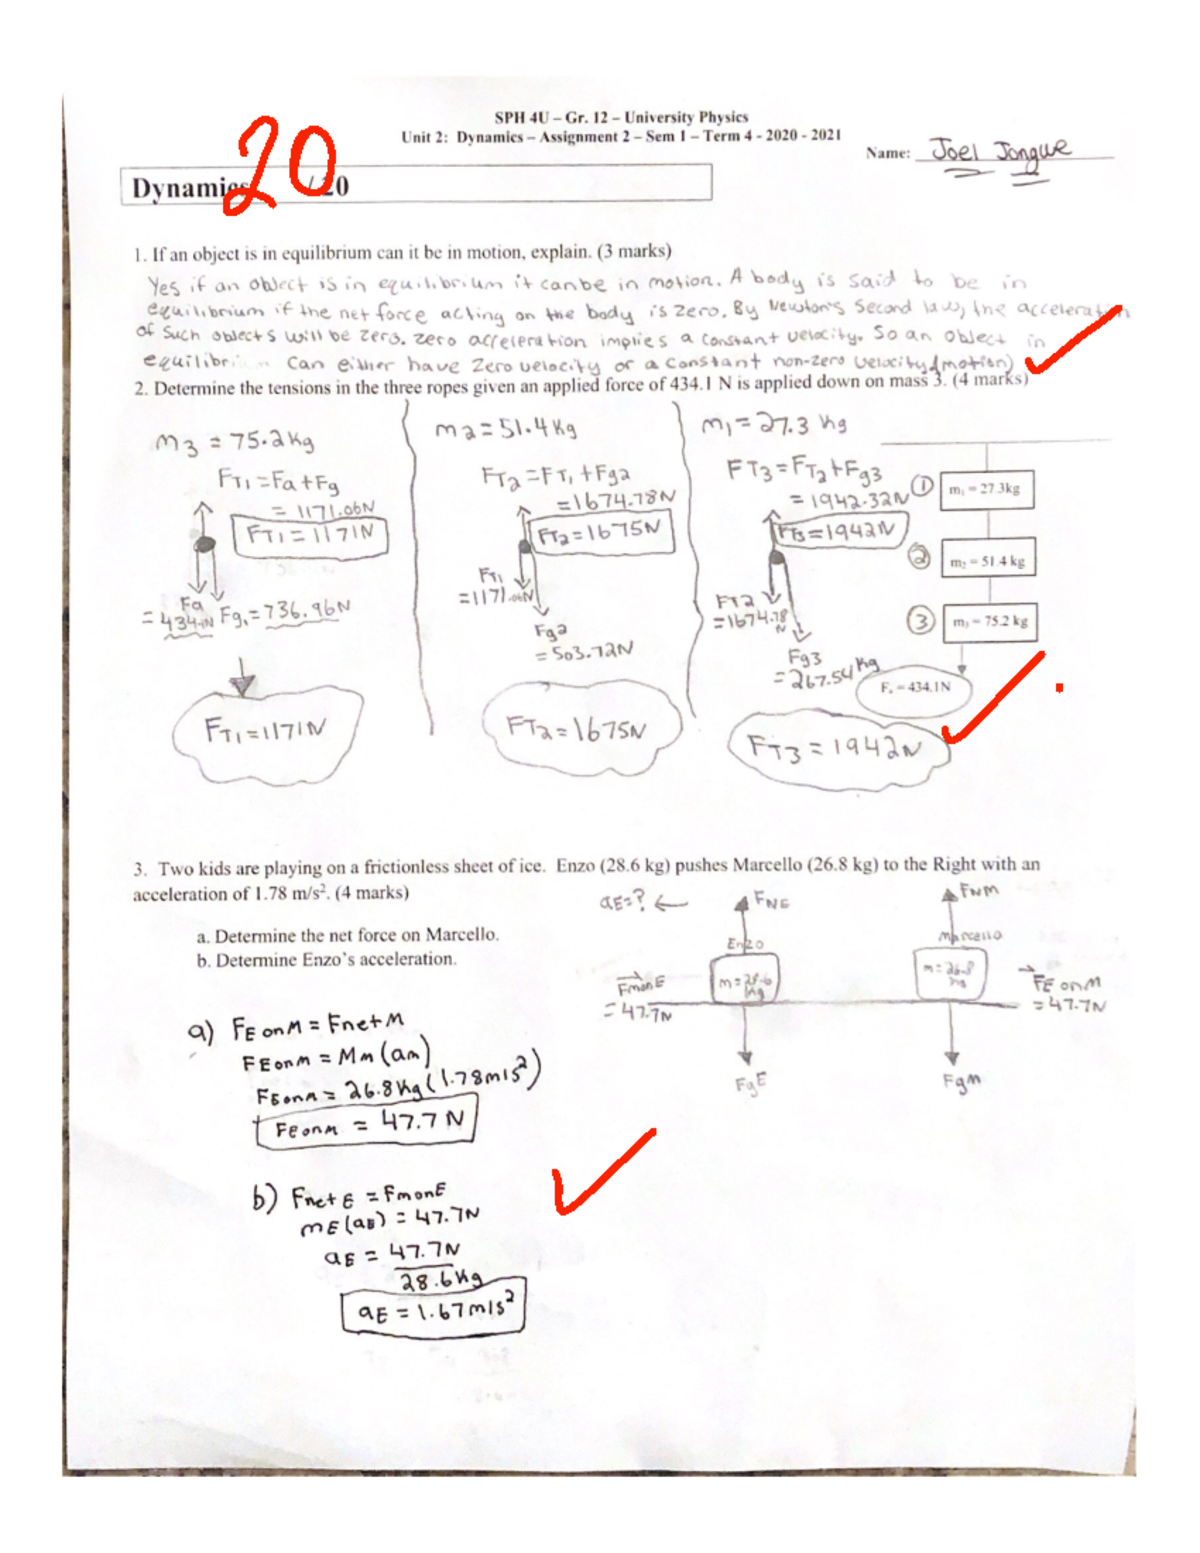 SPH 4U – Gr. 12 – University Physics
Unit 2: Dynamics – Assignment 2 – Sem 1 – Term 4 - 2020 - 2021
Name: Joel Jongwe
20
Dynamics /20
1. If an object is in equilibrium can it be in motion, explain. (3 marks)
Yes if an object is in equilibrium it can be in motion. A body is said to be in
equilibrium if the net force acting on the body is zero. By Newton's Second law, the acceleration
of such objects will be zero. zero acceleration implies a constant velocity. So an object in
equilibrium can either have zero velocity or a constant non-zero velocity (motion)
2. Determine the tensions in the three ropes given an applied force of 434.1 N is applied down on mass 3. (4 marks)
m3 = 75.2kg
FT1 = Fa + Fg
= 1171.06N
FT1 = 1171N
Fa
= 434.1N
Fg1 = 736.96N
FT1 = 1171N
m2 = 51.4kg
FT2 = FT1 + Fg2
= 1674.78N
FT2 = 1675N
FT1
= 1171.06N
Fg2
= 503.72N
FT2 = 1675N
m1 = 27.3 kg
FT3 = FT2 + Fg3
= 1942.32N
FT3 = 1942N
FT2
= 1674.78
N
Fg3
= 267.54 kg
FT3 = 1942N
1
m₁ = 27.3kg
2
m₂ = 51.4 kg
3
m₃ = 75.2 kg
Fₐ = 434.1N
3. Two kids are playing on a frictionless sheet of ice. Enzo (28.6 kg) pushes Marcello (26.8 kg) to the Right with an
acceleration of 1.78 m/s². (4 marks)
a. Determine the net force on Marcello.
b. Determine Enzo's acceleration.
aE = ? ←
FNE
Enzo
m = 28.6
kg
FmonE
= 47.7N
FgE
FNM
Marcello
m = 26.8
kg
FE onM
= 47.7N
Fgm
a) FE onM = Fnet M
FEonM = Mm (am)
FEonM = 26.8kg (1.78m/s²)
FEonM = 47.7 N
b) Fnet E = FmonE
mE (aE) = 47.7N
aE = 47.7N
28.6kg
aE = 1.67m/s²